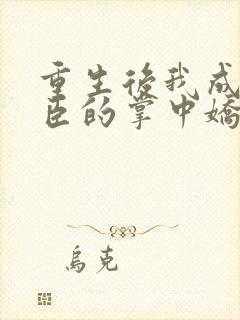 重生後我成
臣的掌中嬌
烏克